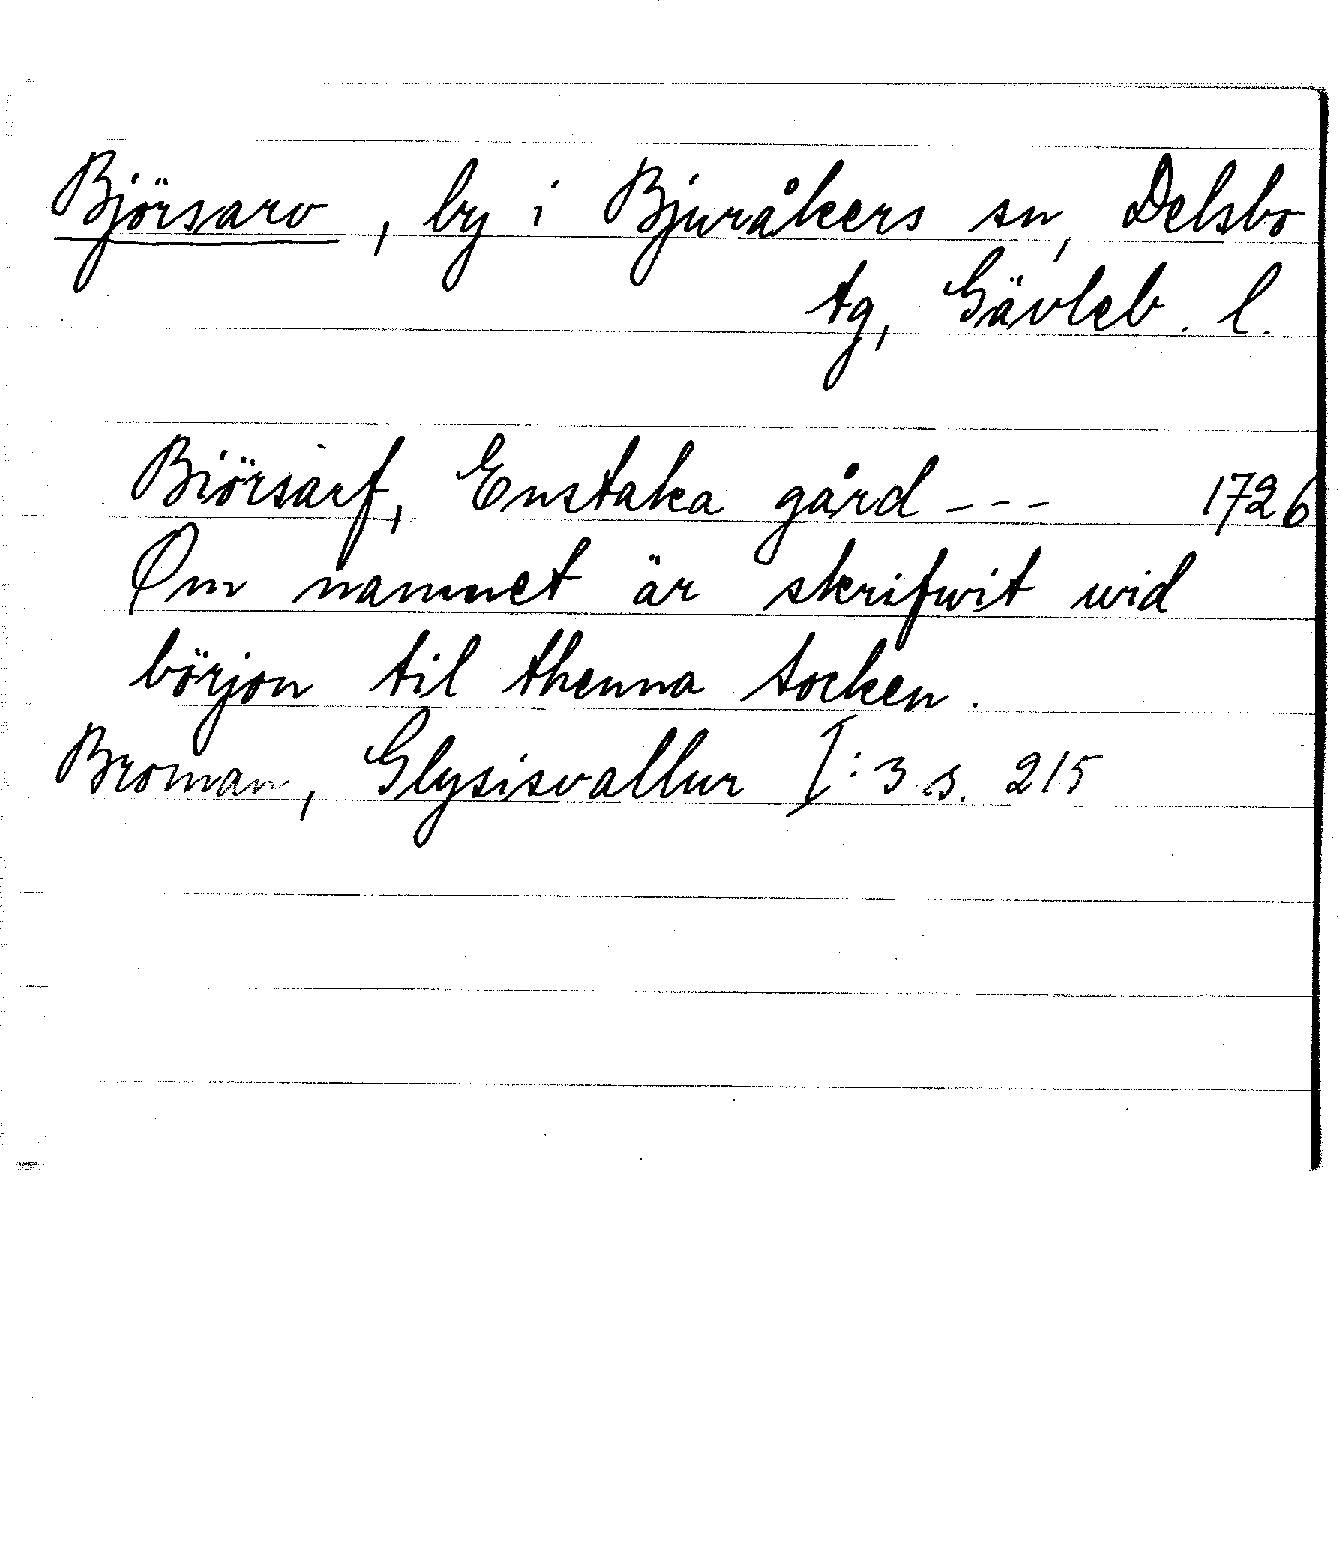 Björsarv, by i Bjuråkers sn, Delsbo
tg, Gävleb. l.
Biörsarf, Enstaka gård --- 1726
Om namnet är skrifwit wid
börjon til thenna socken.
Broman, Glysisvallur I:3 s. 215